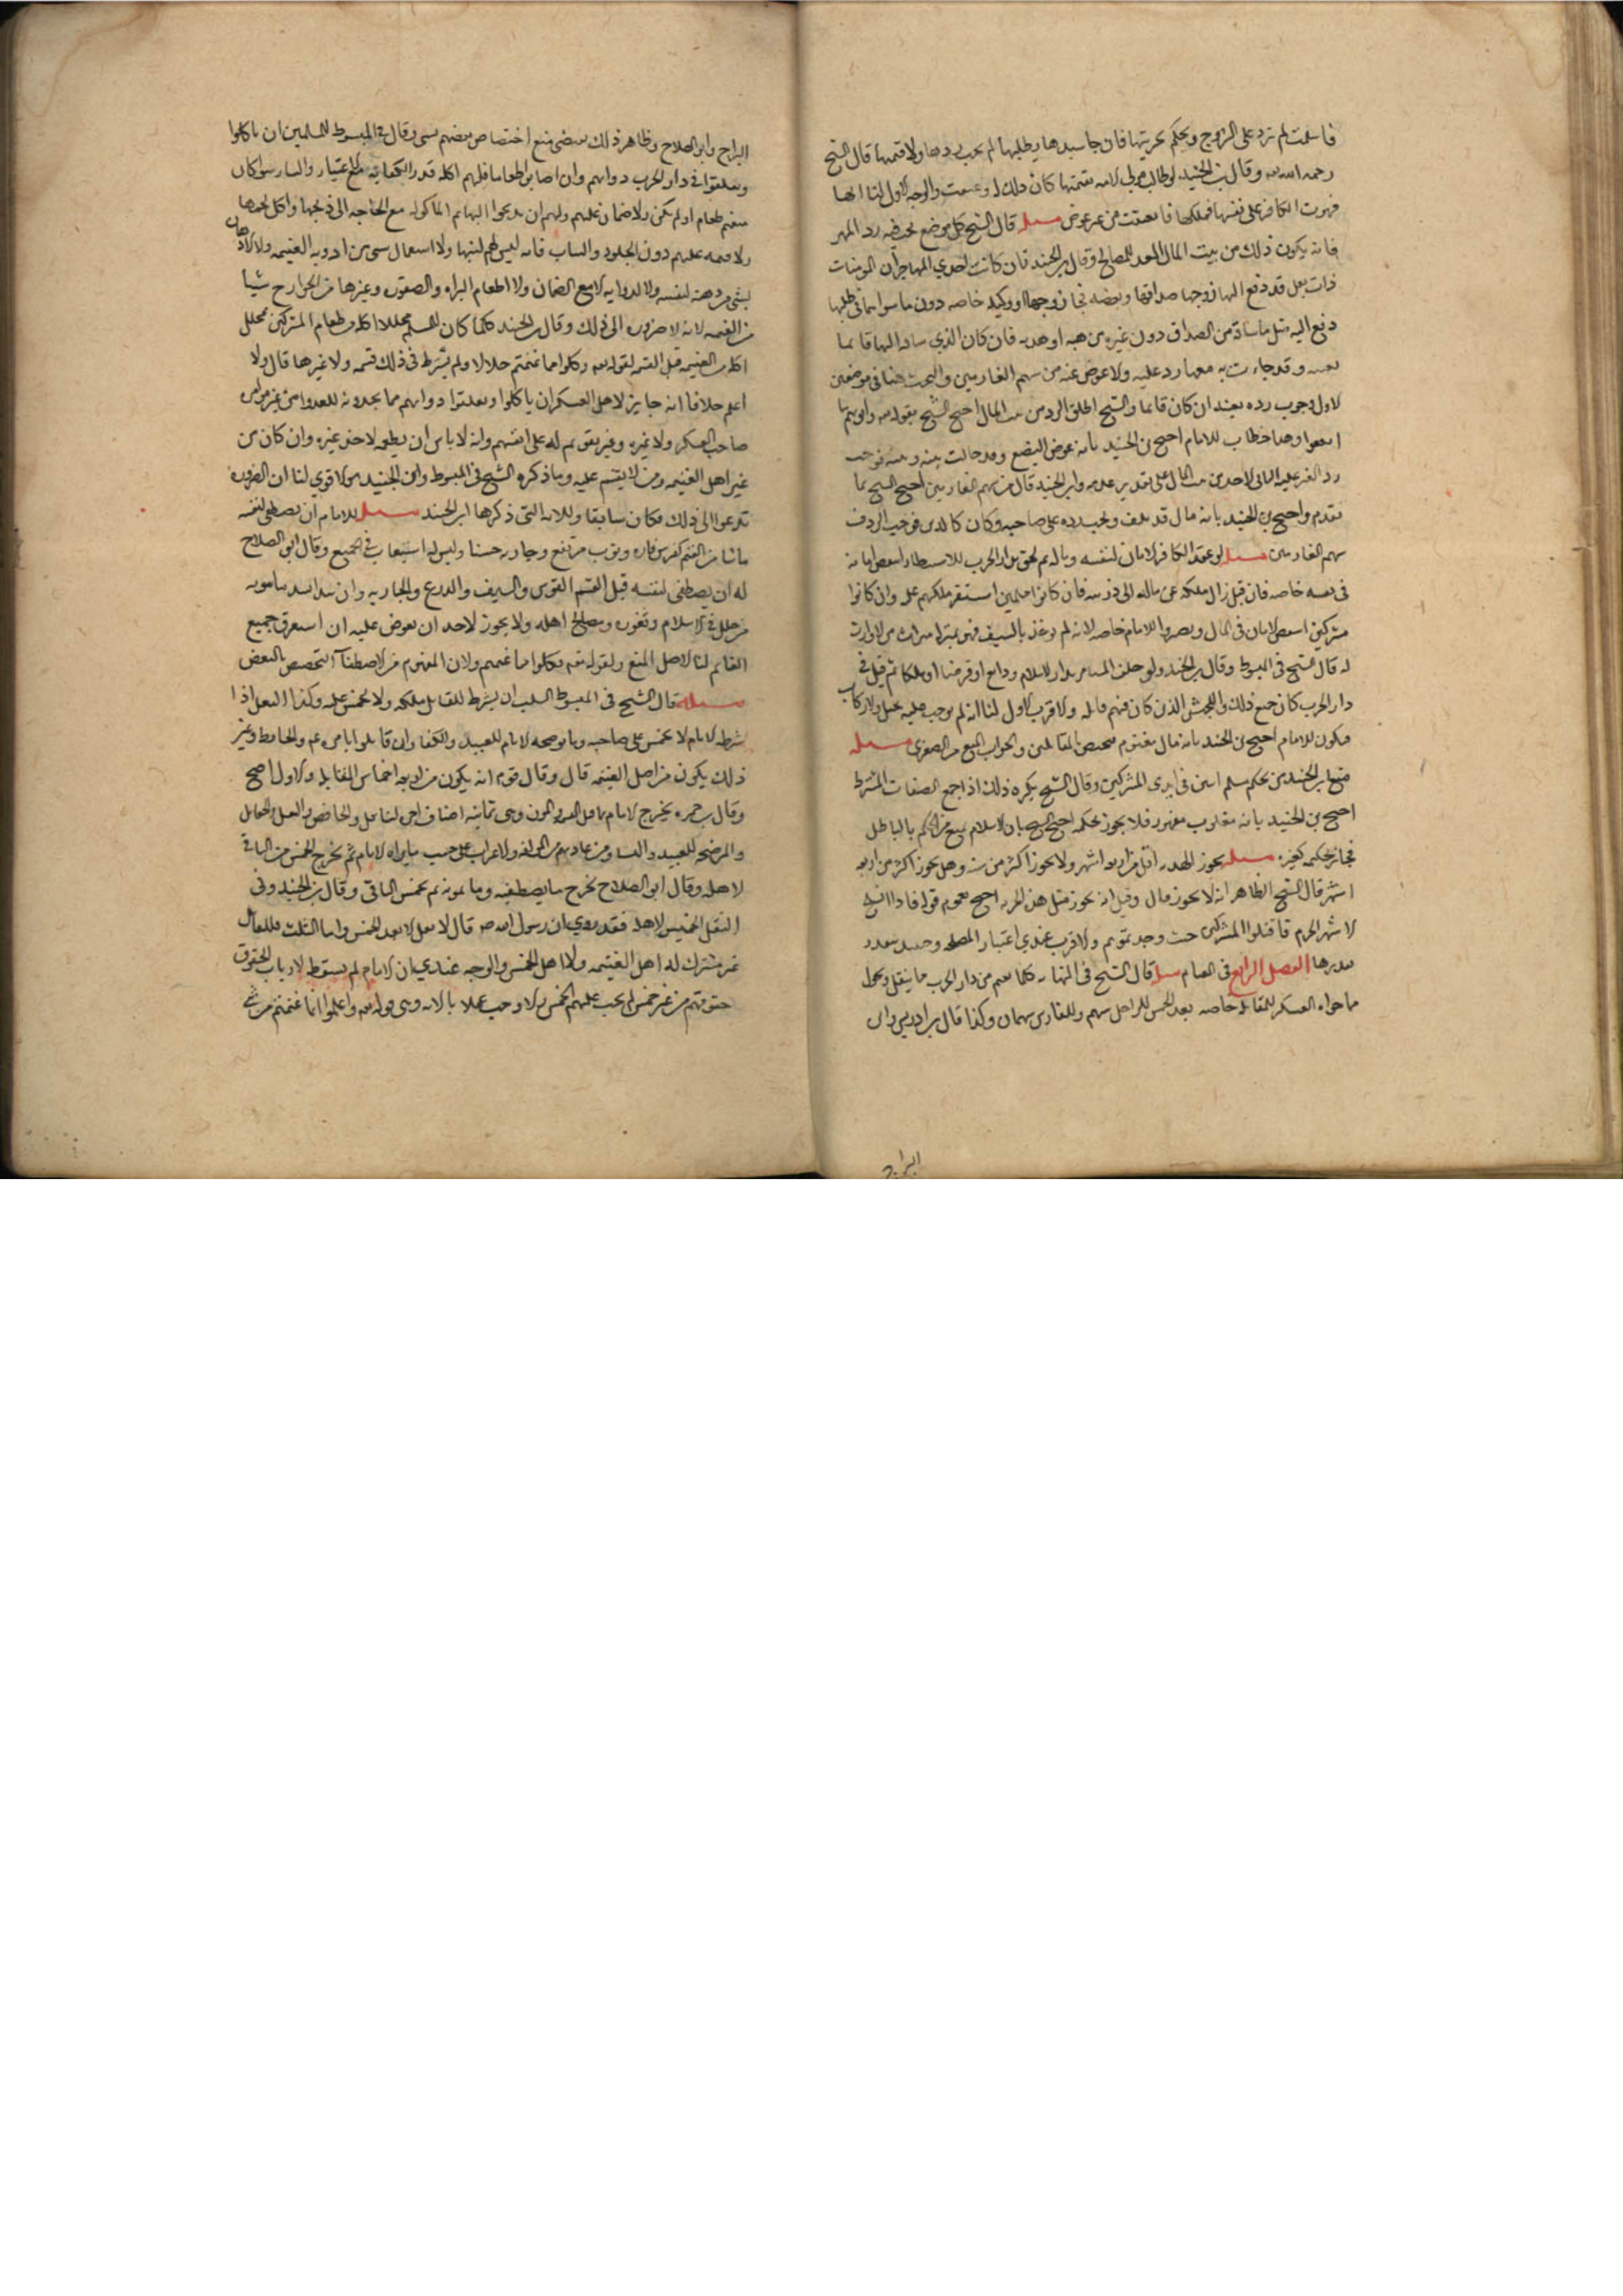 فاسلمت لم ترد على الزوج ويحكم بحريتها فان جا سيدها يطلبها لم يجب ردها ولا قيمتها قال الشيخ
رحمه الله وقال بن الجنيد لو طالب مولى الامه بقيمتها كان ذلك له وعتقت والوجه الاول لنا انها
قهرت الكافر على نفسها فملكتها فانعتقت من غير عوض مسله قال الشيخ كل موضع يجب فيه رد المهر
فانه يكون ذلك من بيت المال المعد للمصالح وقال بن الجنيد فان كانت احدي المهاجرات المومنات
ذات بعل قد دفع اليها زوجها صداقها وبعضه فجا زوجها او وكيله خاصه دون ما سواهما في طلبها
دفع اليه مثل ما ساقه من الصداق دون غيره من هبه او هديه فان كان الذي ساقه اليها قايما
بعينه وقد جاءت به معها رد عليه ولا عوض عنه من سهم الغارمين والبحث هنا في موضعين
الاول وجوب رده بعينه ان كان قايما والشيخ اطلق الرد من بيت المال احتج الشيخ بقوله تعالى واتوهم ما
انفقوا وهذا خطاب للامام احتج بن الجنيد بانه عوض البضع وقد حالت بينه وبينه فوجب
رد العين عليه الثاني الاخذ من بيت المال على تقدير عدمه وابن الجنيد قال من سهم الغارمين احتج الشيخ بما
تقدم واحتج بن الجنيد بانه مال قد تلف ويجب رده على صاحبه وكان كالدين فوجب الرد من
سهم الغارمين مسله لو عقد الكافر الامان لنفسه وماله ثم لحق بدار الحرب للاستيطان انتقض امانه
في نفسه خاصه فان قتل زال ملكه عن ماله الى ورثته فان كانوا مسلمين استقر ملكهم عليه وان كانوا
مشركين انتقض الامان في المال ويصير للامام خاصه لانه لم يوخذ بالسيف فهو بمنزلة ميراث من لا وارث
له قال الشيخ في المبسوط وقال بن الجنيد ولو خلف المستامن بدار الاسلام ودايع او قرضا او ملكا ثم قتل في
دار الحرب كان جميع ذلك والجيش الذين كان فيهم قاتله والاقرب الاول لنا انه لم يوجف عليه بخيل ولا ركاب
فيكون للامام احتج بن الجنيد بانه مال مغنوم فيختص بالمقاتلين والجواب المنع من الصغرى مسله
منع بن الجنيد من تحكيم مسلم اسير في ايدي المشركين وقال الشيخ يكره ذلك اذا جمع الصفات المشترط
احتج بن الجنيد بانه مغلوب مقهور فلا يجوز تحكيمه احتج الشيخ بان الاسلام يمنع من الحكم بالباطل
فجاز تحكيمه كغيره مسله يجوز الهدنه اقل من اربعه اشهر ولا يجوز اكثر من سنه وهل يجوز اكثر من اربعه
اشهر قال الشيخ الظاهر انه لا يجوز قال وقيل انه يجوز مثل هذه الجزيه احتج بعموم قوله فاذا انسلخ
الاشهر الحرم فاقتلوا المشركين حيث وجدتموهم والاقرب عندي اعتبار المصلحه وحينئذ يتقدر
بقدرها الفصل الرابع في الغنايم مسله قال الشيخ في النهايه كلما يغنم من دار الحرب مما ينقل ويحول
مما حواه العسكر للمقاتله خاصه بعد الخمس للراجل سهم وللفارس سهمان وكذا قال بن ادريس وابن
البراج
البراج وابو الصلاح وظاهر ذلك يقتضي منع اختصاص بعضهم بشي وقال في المبسوط للمسلمين ان ياكلوا
ويعلفوا في دار الحرب دوابهم وان اصابوا طعاما فلهم اكله قدر الكفايه مع الاعتبار واليسار سوا كان
معهم طعام او لم يكن ولا ضمان عليهم ولهم ان يذبحوا البهايم الماكوله مع الحاجه الى ذبحها واكل لحمها
ولا قيمه عليهم دون الجلود والثياب فانه ليس لهم لبسها ولا استعمال شي من ادويه الغنيمه ولا الادهان
لشي من دهنه لنفسه ولا لدوابه الا مع الضمان ولا اطعام البزاه والصقور وغيرها من الجوارح شيا
من الغنيمه لانه لا ضروره الى ذلك وقال بن الجنيد كلما كان للمسلم محللا اكله من طعام المشركين محلل
اكله من الغنيمه قبل القسم لقوله تعالى وكلوا مما غنمتم حلالا ولم يشترط في ذلك قسمه ولا غيرها قال ولا
اعلم خلافا انه جايز لاهل العسكر ان ياكلوا ويعلفوا دوابهم مما يجدونه للعدو من غير
صاحب العسكر ولا غيره وغير بقويم له على انفسهم وانه لا باس ان يطعمه لاخر غيره وان كان من
غير اهل الغنيمه ومن لا يقسم عليه وما ذكره الشيخ في المبسوط وابن الجنيد هو الاقوي لنا ان الضروره
تدعوا الى ذلك فكان سايغا وللايه التي ذكرها ابن الجنيد مسله للامام ان يصطفي لنفسه
ما شا من الغنيمه كفرس فاره وثوب مرتفع وجاريه حسنا وليس له استيعاب الجميع وقال ابو الصلاح
له ان يصطفي لنفسه قبل القسم الفرس والسيف والدرع والجاريه وان يبدا بسد ما ينوبه
من خلل في الاسلام وثغوره ومصالح اهله ولا يجوز لاحد ان يعترض عليه ان استغرق جميع
الغنايم لنا الاصل المنع ولقوله تعالى فكلوا مما غنمتم ولان المفهوم من الاصطفا التخصيص بالبعض
مسله قال الشيخ في المبسوط السلب ان يشرط للقاتل ملكه ولا يخمس عليه وكذا النفل اذا
شرطه الامام لا يخمس على صاحبه وما يرضخه الامام للعبيد والكفار ان قاتلوا باذن الامام والحافظ وغير
ذلك يكون من اصل الغنيمه قال وقال قوم انه يكون من اربعه اخماس المقاتله والاول اصح
وقال بن حمزه يخرج الامام منها قبل القسمه المون وهي ثمانيه اصناف اجره الناقل والحافظ والنفل والجعايل
والرضخه للعبيد والنسا ومن عاونهم من المولفه والاعراب على حسب ما يراه الامام ثم يخرج الخمس من الباقي
لاهله وقال ابو الصلاح يخرج ما يصطفيه وما ينوبه ثم يخمس الباقي وقال بن الجنيد وفي
النفل الخمس لاهله فقد روي ان رسول الله ص قال لا نفل الا بعد الخمس واما السلب فللقاتل
غير مشترك له اهل الغنيمه ولا اهل الخمس والوجه عندي ان الامام لم يسقط لارباب الحقوق
حقوقهم من غير خمس لم يجب عليهم الخمس والا وجب عملا بالايه وهي قوله تعالى واعلموا انما غنمتم من شي